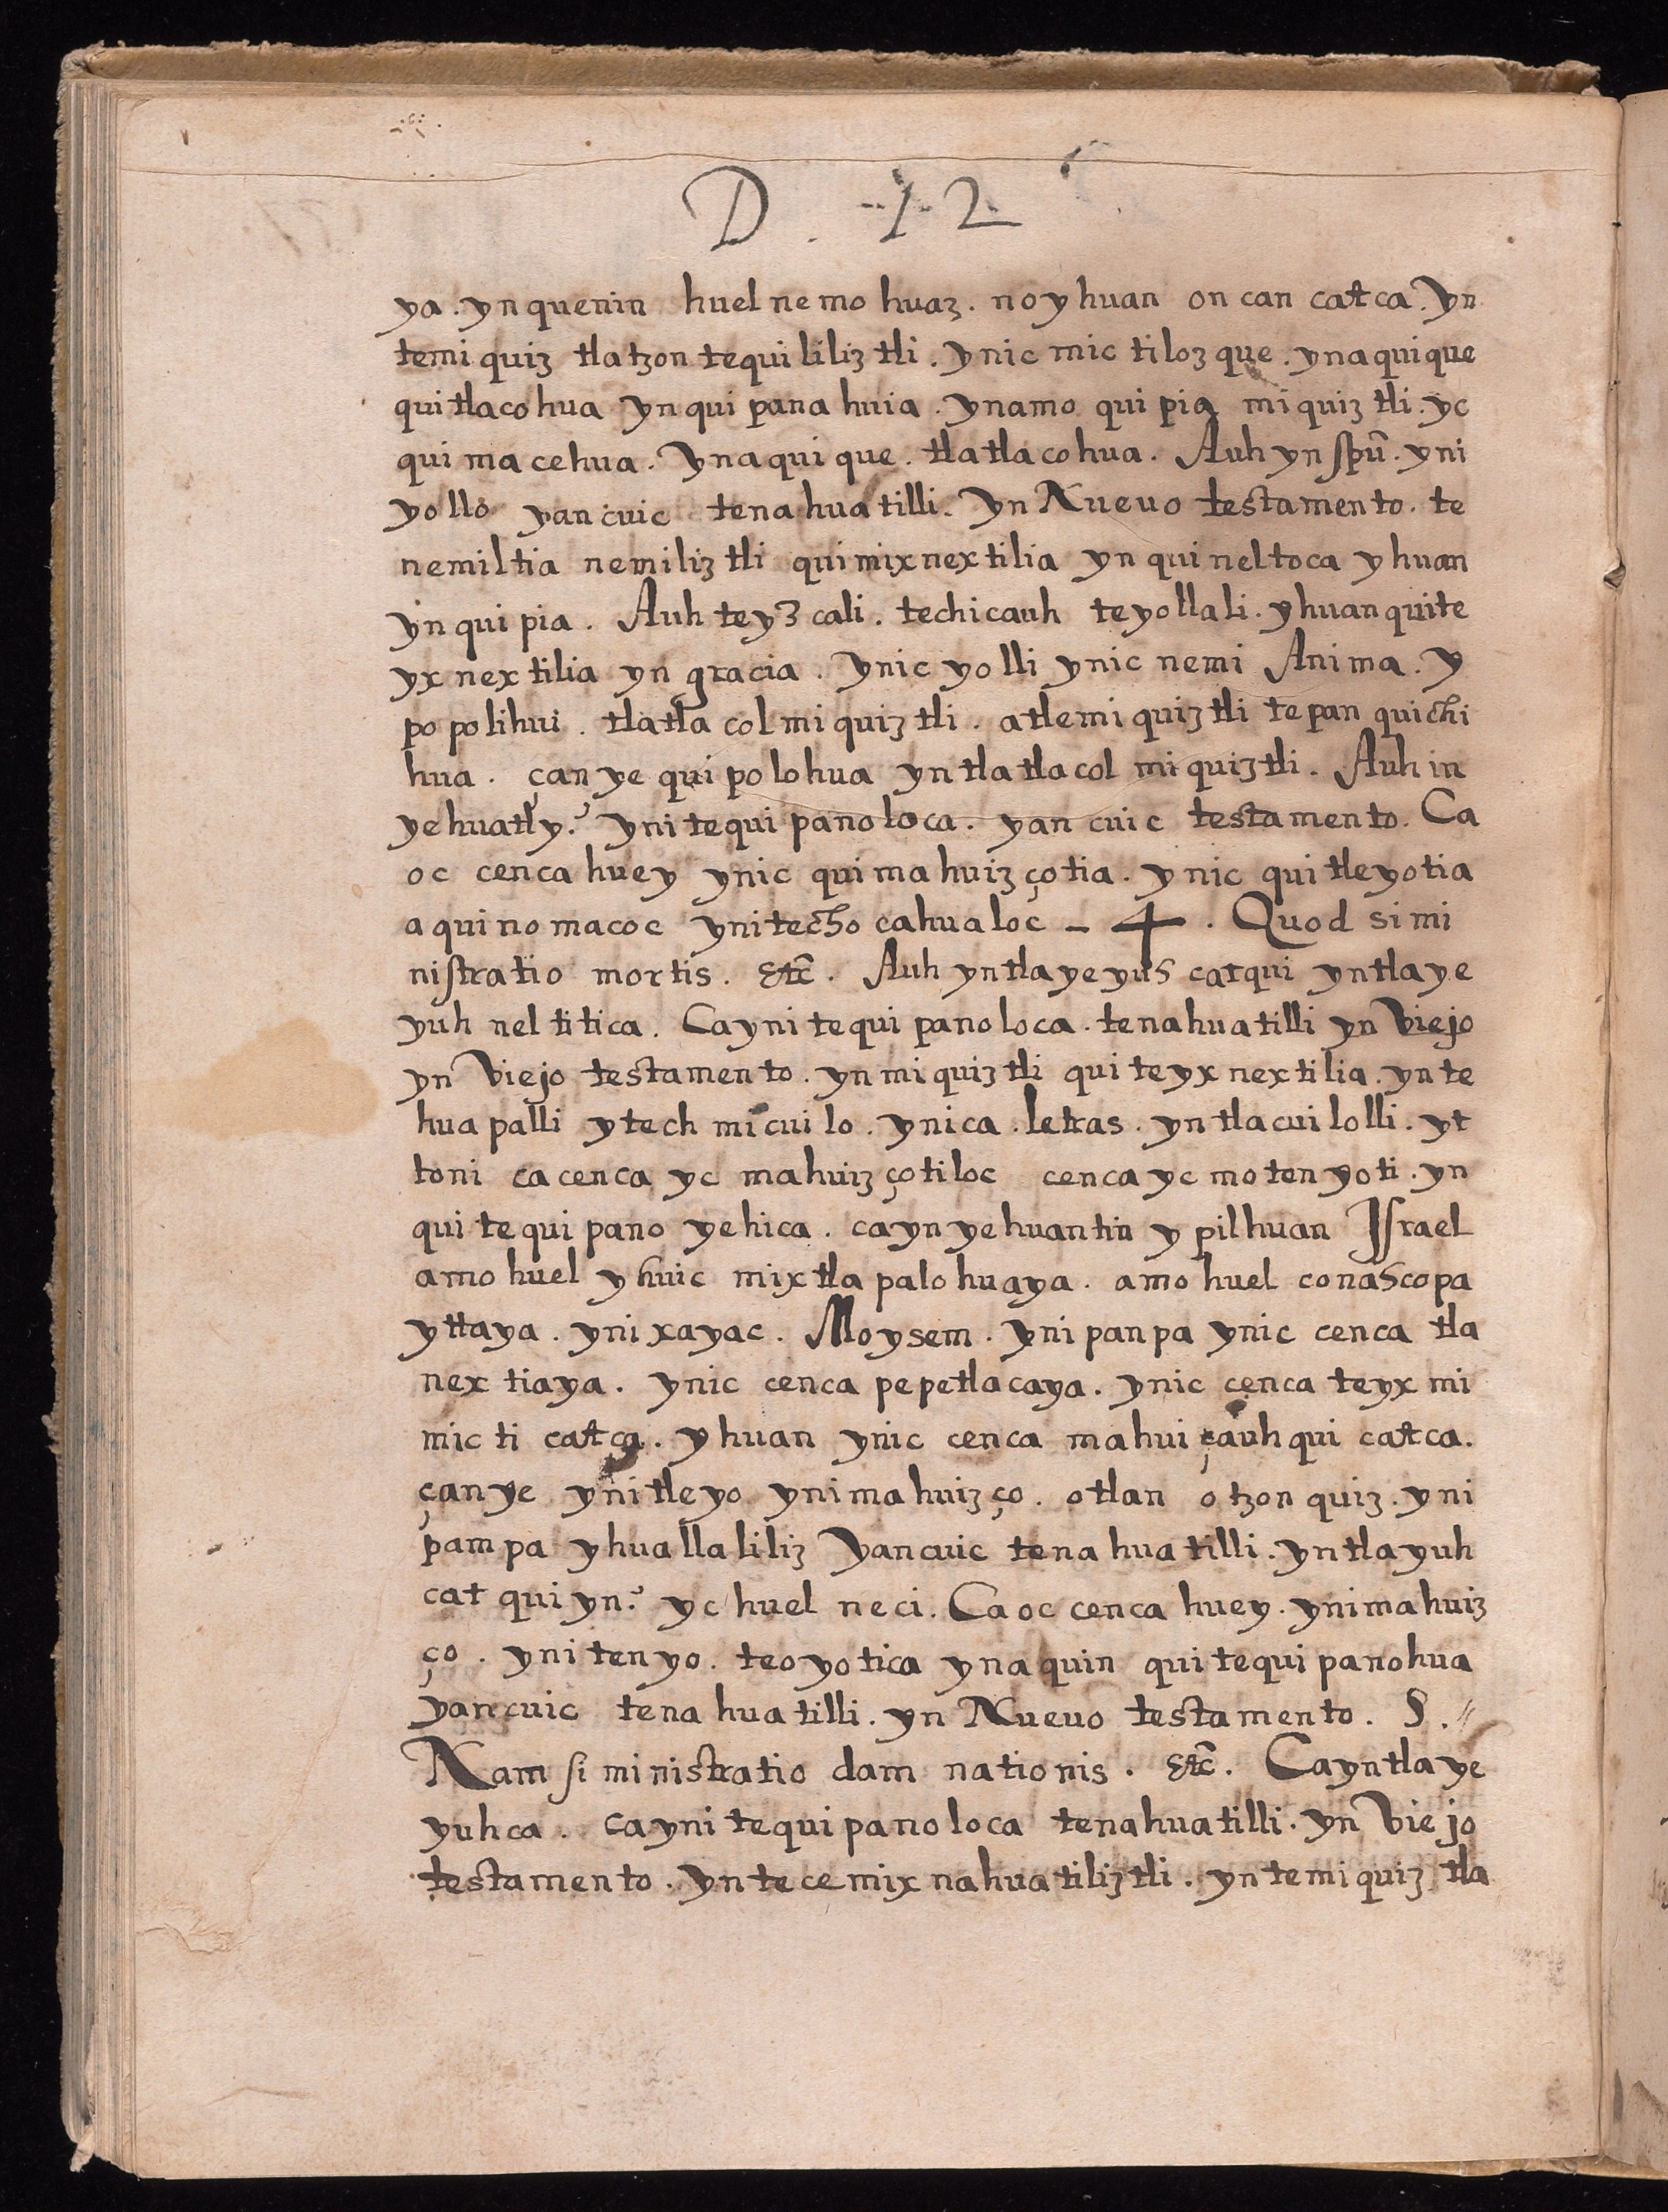 D. 12
ya. yn quenin huel nemo huaz. no yhuan on can catca. Yn
temi quiz tlatzon tequi liliz tli. ynic mic tiloz que. yna qui que
quitlaco hua yn qui pana huia. ynamo qui pia mi quiz tli. yc
qui ma cehua. Yna qui que. tlatla co hua. Auh yn spũ. yni
yollo yancuic tena hua tilli. Yn Nueuo testamento. te
nemiltia nemiliz tli qui mix nex tilia yn qui nel toca yhuan
yn qui pia. Auh teyz cali. techicauh teyollali. yhuan quite
yx nex tilia yn gracia. ynic yolli ynic nemi Anima. y
po polihui. tlatla col mi quiz tli. atle mi quiz tli te pan quichi
hua. çan ye qui po lo hua yn tla tla col mi quiz tli. Auh in
yehuatly? yni tequi pano loca. yan cuic testamento. Ca
oc cenca huey ynic qui ma huiz çotia. ynic qui tleyotia
a qui no macoc yni techo cahua loc – 4. Quod si mi
nistratio mortis. etc̃. Auh yn tla ye yuh catqui yn tla ye
yuh nel titica. Ca yni tequi pano loca. tenahua tilli yn Viejo
yn Viejo testamento. yn mi quiz tli qui te yx nex tilia. yn te
hua palli ytech micui lo. ynica. letras. yn tlacui lolli. yt
toni ca cenca yc mahuiz çotiloc cenca yc mo ten yoti. yn
qui te qui pano yehica. ca yn yehuantin y pilhuan Israel
amo huel yhuic mix tla palo huaya. amo huel conascopa
yttaya. yni xayac. Moysem. yni panpa ynic cenca tla
nex tiaya. ynic cenca pepetla caya. ynic cenca teyx mi
mic ti catca. yhuan ynic cenca mahui çauh qui catca.
çan ye yni tle yo yni ma huiz ço. otlan o tzon quiz. yni
pam pa yhualla liliz yancuic tena hua tilli. yn tla yuh
cat qui yn? yc huel neci. Ca oc cenca huey. yni mahuiz
ço. yni ten yo. teo yo tica yna quin qui tequi panohua
yancuic tena hua tilli. yn Nueuo testamento. S.
Nam si ministratio dam nationis. etc̃. Ca yn tla ye
yuh ca. ca yni tequi pano loca tenahua tilli. yn Viejo
testamento. yn te ce mix nahua tiliz tli. yn te mi quiz tla